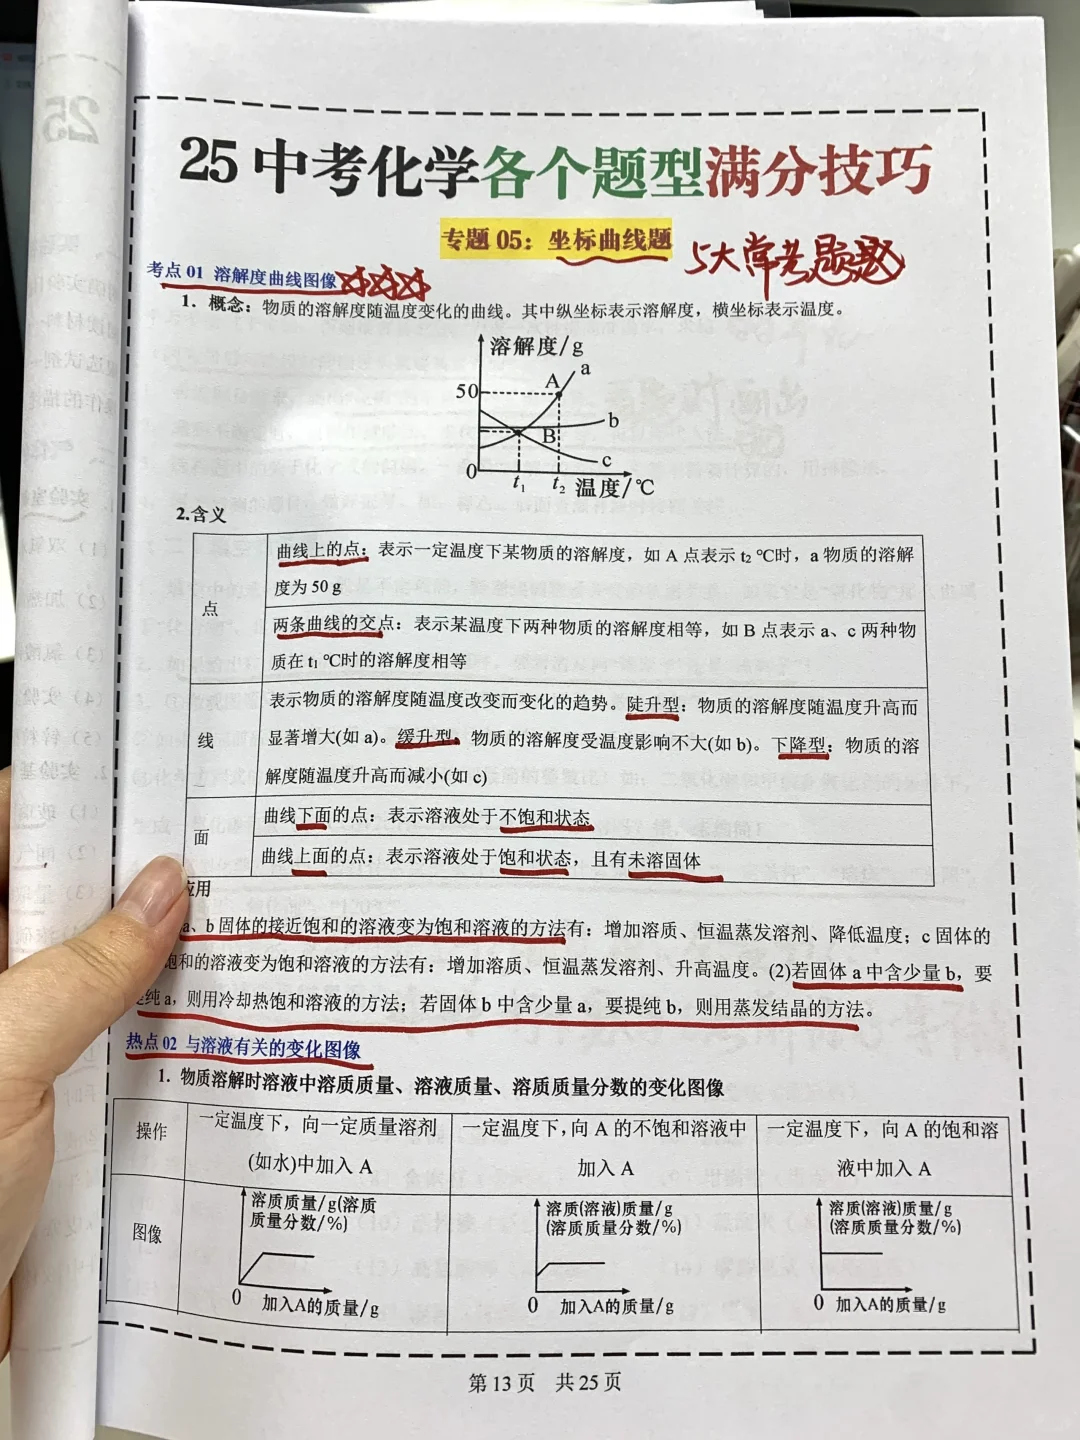 25中考化学各个题型满分技巧
专题 05：坐标曲线题
5大常考题
考点01 溶解度曲线图像
1. 概念：物质的溶解度随温度变化的曲线。其中纵坐标表示溶解度，横坐标表示温度。
溶解度/g
a
A
50
b
B
c
0
t₁ t₂ 温度/℃
2.含义
点
曲线上的点：表示一定温度下某物质的溶解度，如 A 点表示 t₂ ℃时，a 物质的溶解
度为 50 g
两条曲线的交点：表示某温度下两种物质的溶解度相等，如 B 点表示 a、c 两种物
质在 t₁ ℃时的溶解度相等
线
表示物质的溶解度随温度改变而变化的趋势。陡升型：物质的溶解度随温度升高而
显著增大(如 a)。缓升型：物质的溶解度受温度影响不大(如 b)。下降型：物质的溶
解度随温度升高而减小(如 c)
面
曲线下面的点：表示溶液处于不饱和状态
曲线上面的点：表示溶液处于饱和状态，且有未溶固体
应用
a、b 固体的接近饱和的溶液变为饱和溶液的方法有：增加溶质、恒温蒸发溶剂、降低温度；c 固体的
饱和的溶液变为饱和溶液的方法有：增加溶质、恒温蒸发溶剂、升高温度。(2)若固体 a 中含少量 b，要
纯 a，则用冷却热饱和溶液的方法；若固体 b 中含少量 a，要提纯 b，则用蒸发结晶的方法。
热点 02 与溶液有关的变化图像
1. 物质溶解时溶液中溶质质量、溶液质量、溶质质量分数的变化图像
操作
一定温度下，向一定质量溶剂
(如水)中加入 A
一定温度下，向 A 的不饱和溶液中
加入 A
一定温度下，向 A 的饱和溶
液中加入 A
图像
溶质质量/g(溶质
质量分数/%)
0 加入A的质量/g
溶质(溶液)质量/g
(溶质质量分数/%)
0 加入A的质量/g
溶质(溶液)质量/g
(溶质质量分数/%)
0 加入A的质量/g
第 13 页 共 25 页